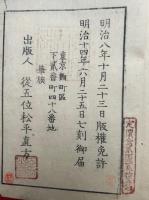 明治八年十月二十三日版權免許
明治十四年六月二十五日七刻御届
東京麹町區
下二番町四十八番地
華族
出版人 從五位松平直方